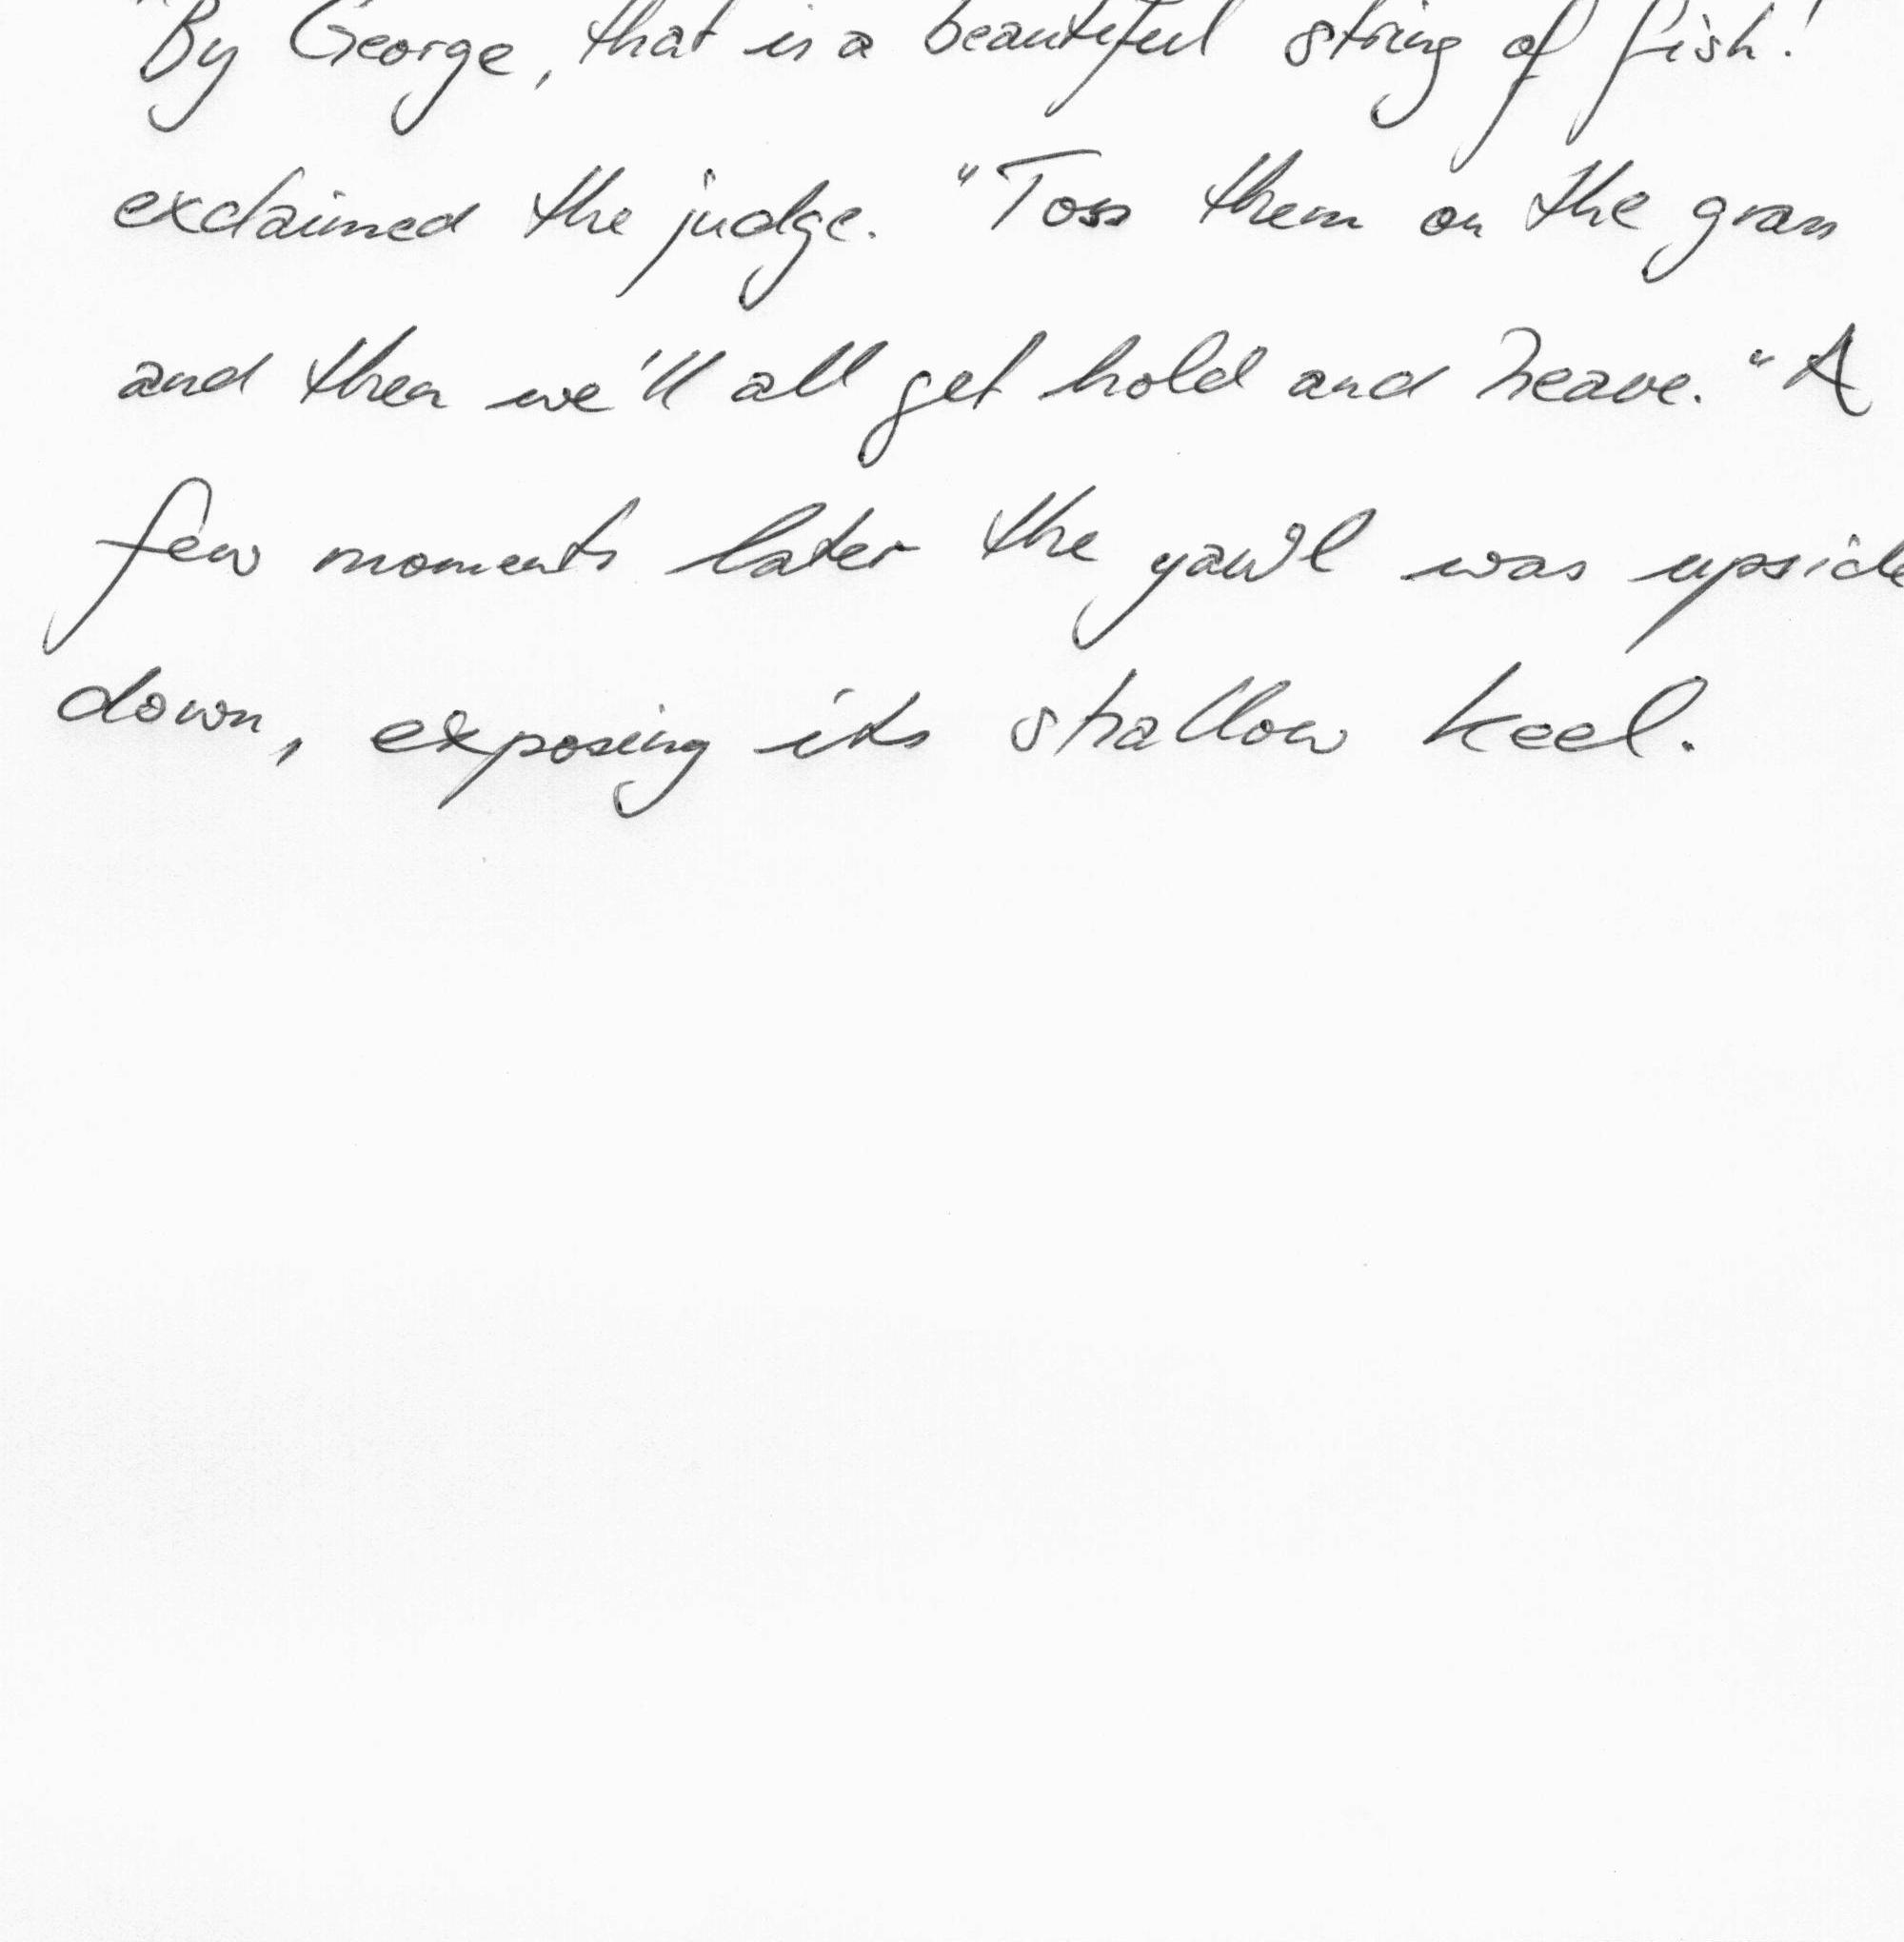 "By George, that is a beautiful string of fish!
exclaimed the judge. "Toss them on the grass
and then we'll all get hold and heave." A
few moments later the yawl was upside
down, exposing its shallow keel.